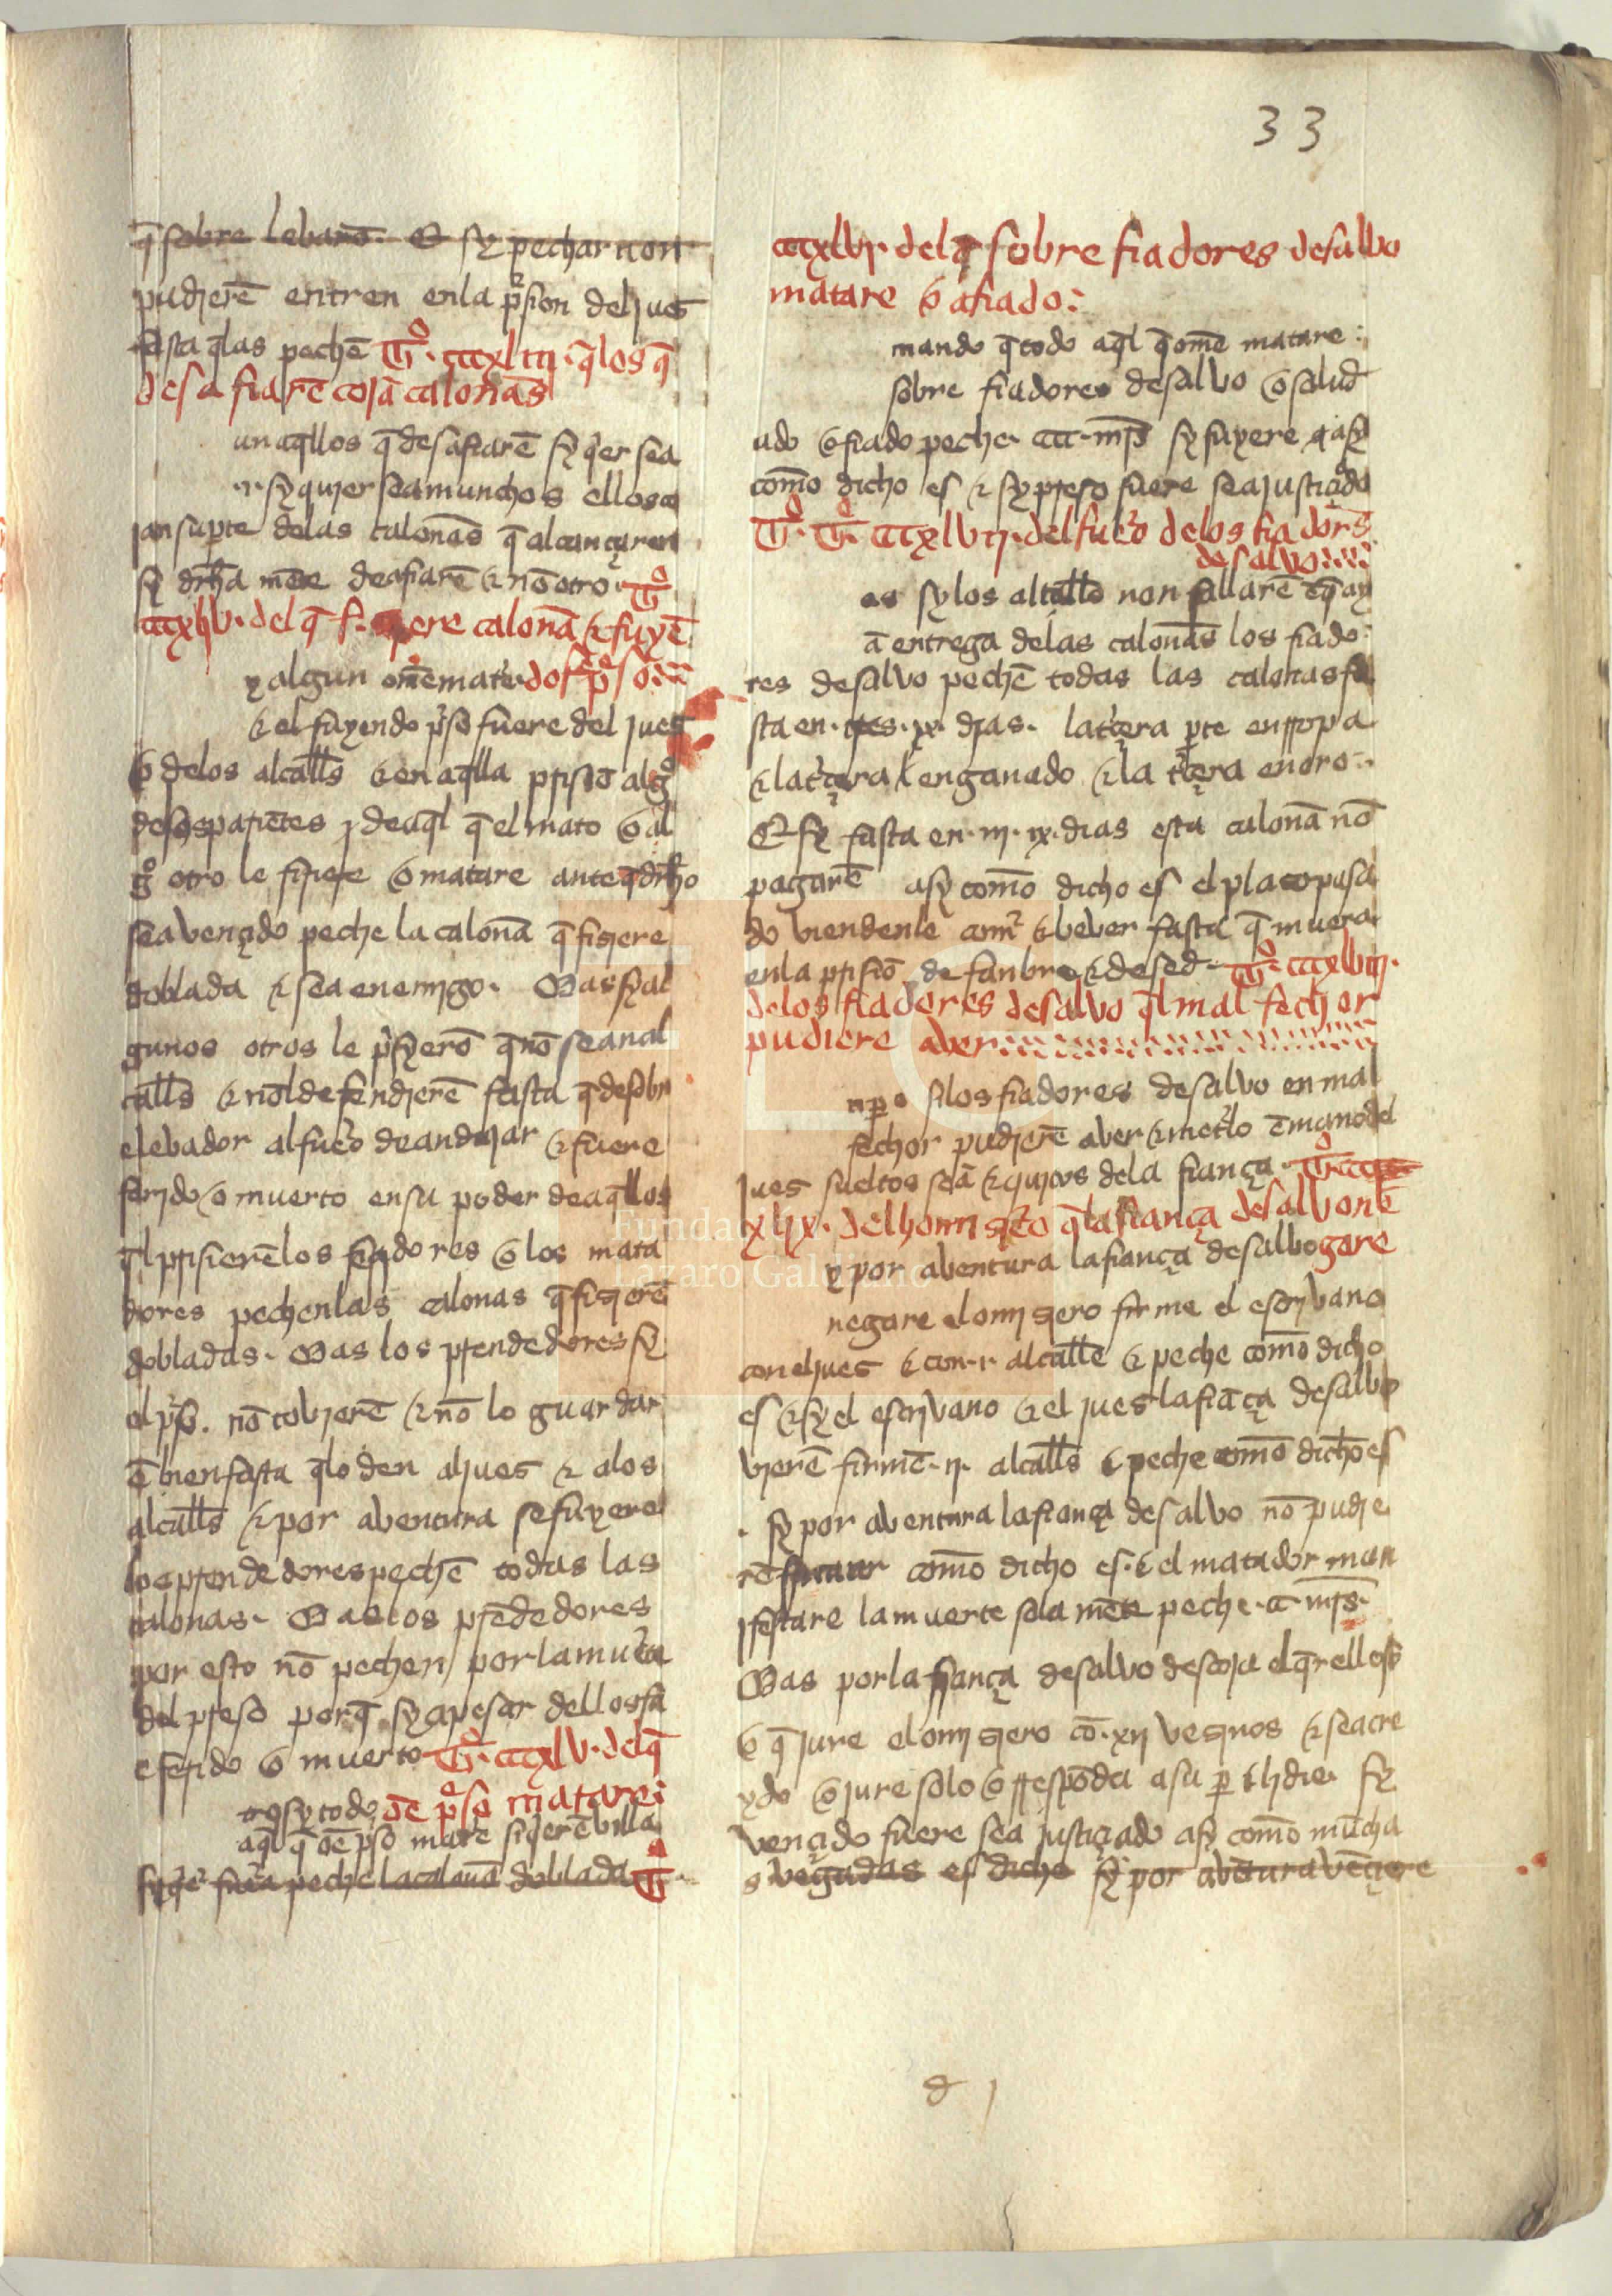 33
q̃ sobre lebarõ. E sy pechar non
pudierẽ entren enla p̃sion del jues
fasta q̃las pechẽ Tº. cccxliii. q̃los q̃
desafiarẽ cojã calonãs
un aq̃llos q̃ desafiarẽ sy q̃er sea
.i. sy quier sea munchos ellos co
jan su parte delas calonãs q̃ alcançaren
sy drẽcha mẽte deafiarẽ & nõ otro. Tº
cccxliiv. del q̃ f. ere calonã & fuyẽ
y algun omẽ matẽ. do f p̃so
& el fuyendo p̃so fuere del jues
o delos alcall̃s & en aq̃lla prisiõ algº
de sos pariẽtes i de aq̃l q̃ el mato o al
gº otro le firiere o matare ante q̃ drẽcho
sea vençido peche la calonã q̃ fisiere
doblada & sea enemigo. Mas sy al
gunos otros le p̃syerõ q̃ nõ sean al
call̃s & nõl defendierẽ fasta q̃ de sobr
elebador al fuẽo de andujar & fuere
ferido o muerto en su poder de aq̃llos
q̃l prisierẽ los feridores o los mata
dores pechen las calonas q̃ fisierẽ
dobladas. Mas los prendedores sy
el p̃so. nõ tovierẽ & nõ lo guardar
ẽ bien fasta q̃lo den al jues & alos
alcall̃s & por abentura se fuyere
los prendedores pechẽ todas las
calonas. Mas los prẽdedores
por esto nõ pechen por la muẽte
del preso porq̃ sy a pesar dellos fu
e ferido o muerto Tº. cccxlv. del q̃
trosy todo õe p̃so matare:
aq̃l q̃ õe p̃so matẽ si q̃erẽ villa
sy q̃er fuẽa peche la calonã doblada Tº
cccxlvi. del q̃ sobre fiadores de salvo
matare o afiado:
mando q̃ todo aq̃l q̃ omẽ matare:
sobre fiadores de salvo o salud
ado o fiado peche. ccc. mr̃s sy fuyere asy
comõ dicho es & sy preso fuere sea justiçido
Tº. Tº. cccxlvii. del fuẽo delos fiadorẽs
de salvo
as sy los alcall̃s non fallarẽ ẽ q̃ ay
ã entrega delas calonãs los fiado
res de salvo pechẽ todas las calonas fa
sta en. ix. dias. la tẽçera parte en rropa
& la tẽçera en ganado & la tẽçera en oro:.
E sy fasta en. iii. ix. dias esta calonã nõ
pagarẽ asy comõ dicho es el plaço pasa
do viendenle comẽ & bever fasta q̃ muera
enla prisiõ de fanbre & de sed Tº. cccxlviii.
delos fiadores de salvo q̃l mal fechor
pudiere aver
npº silos fiadores de salvo en mal
fechor pudierẽ aver & metẽlo ẽ mano del
jues sueltos seã & quitos dela fiança. Tº. ccc
xlix. del homisiẽo q̃ la fiança de salvo nẽ
y por abentura la fiança de salbo gare
negare el omisiero firme el escrivano
con el jues & con .i. alcall̃e & peche comõ dicho
es & sy el escrivano & el jues la fiãça de salbo
vierẽ firmẽ .ii. alcall̃s & peche comõ dicho es
. sy por aventura la fiança de salvo nõ pudie
rẽ firmar comõ dicho es. & el matador man
ifestare la muerte sola mẽte peche. c. mr̃s.
Mas por la fiança de salvo descoja el q̃relloso
o q̃ jure el omisiero cõ. xii vesinos & sea cre
ydo o jure solo o rrespõda a su par & lidie. sy
vençido fuere sea justiçiado asy comõ mũcha
s vegadas es dicho sy por abẽtura vẽçiere
d j
Fundación
Lázaro Galdiano